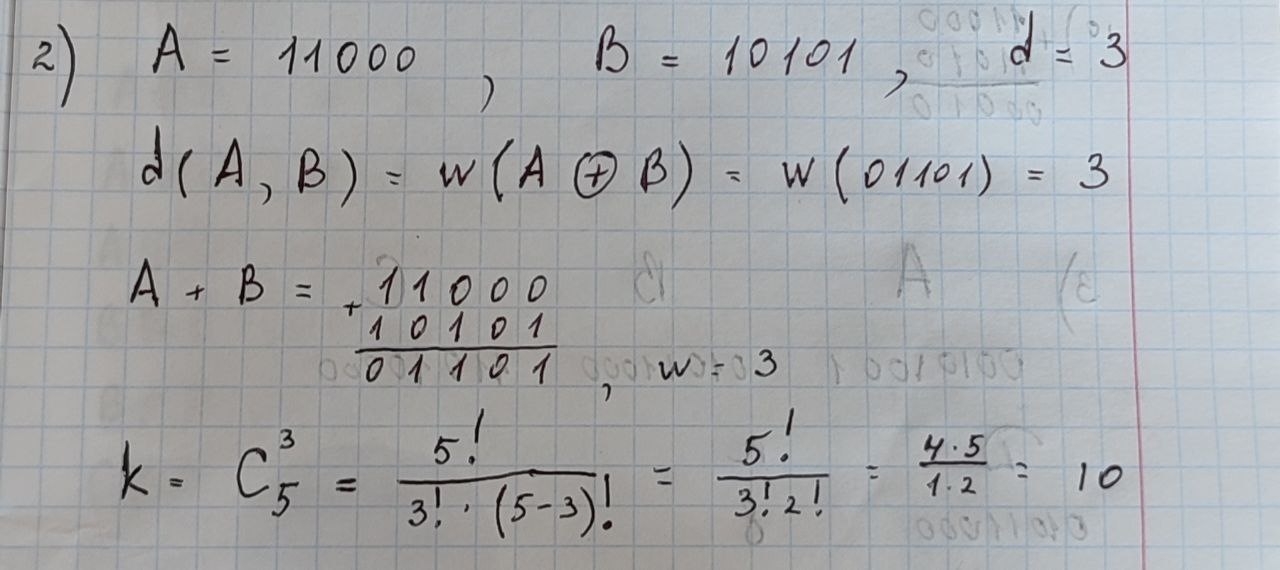 2) A = 11000 , B = 10101 , d = 3
d(A, B) = w(A ⊕ B) = w(01101) = 3
A + B = + 11000
10101
01101 , w = 3
k = C₅³ = 5! / (3! · (5-3)!) = 5! / (3! 2!) = (4·5) / (1·2) = 10